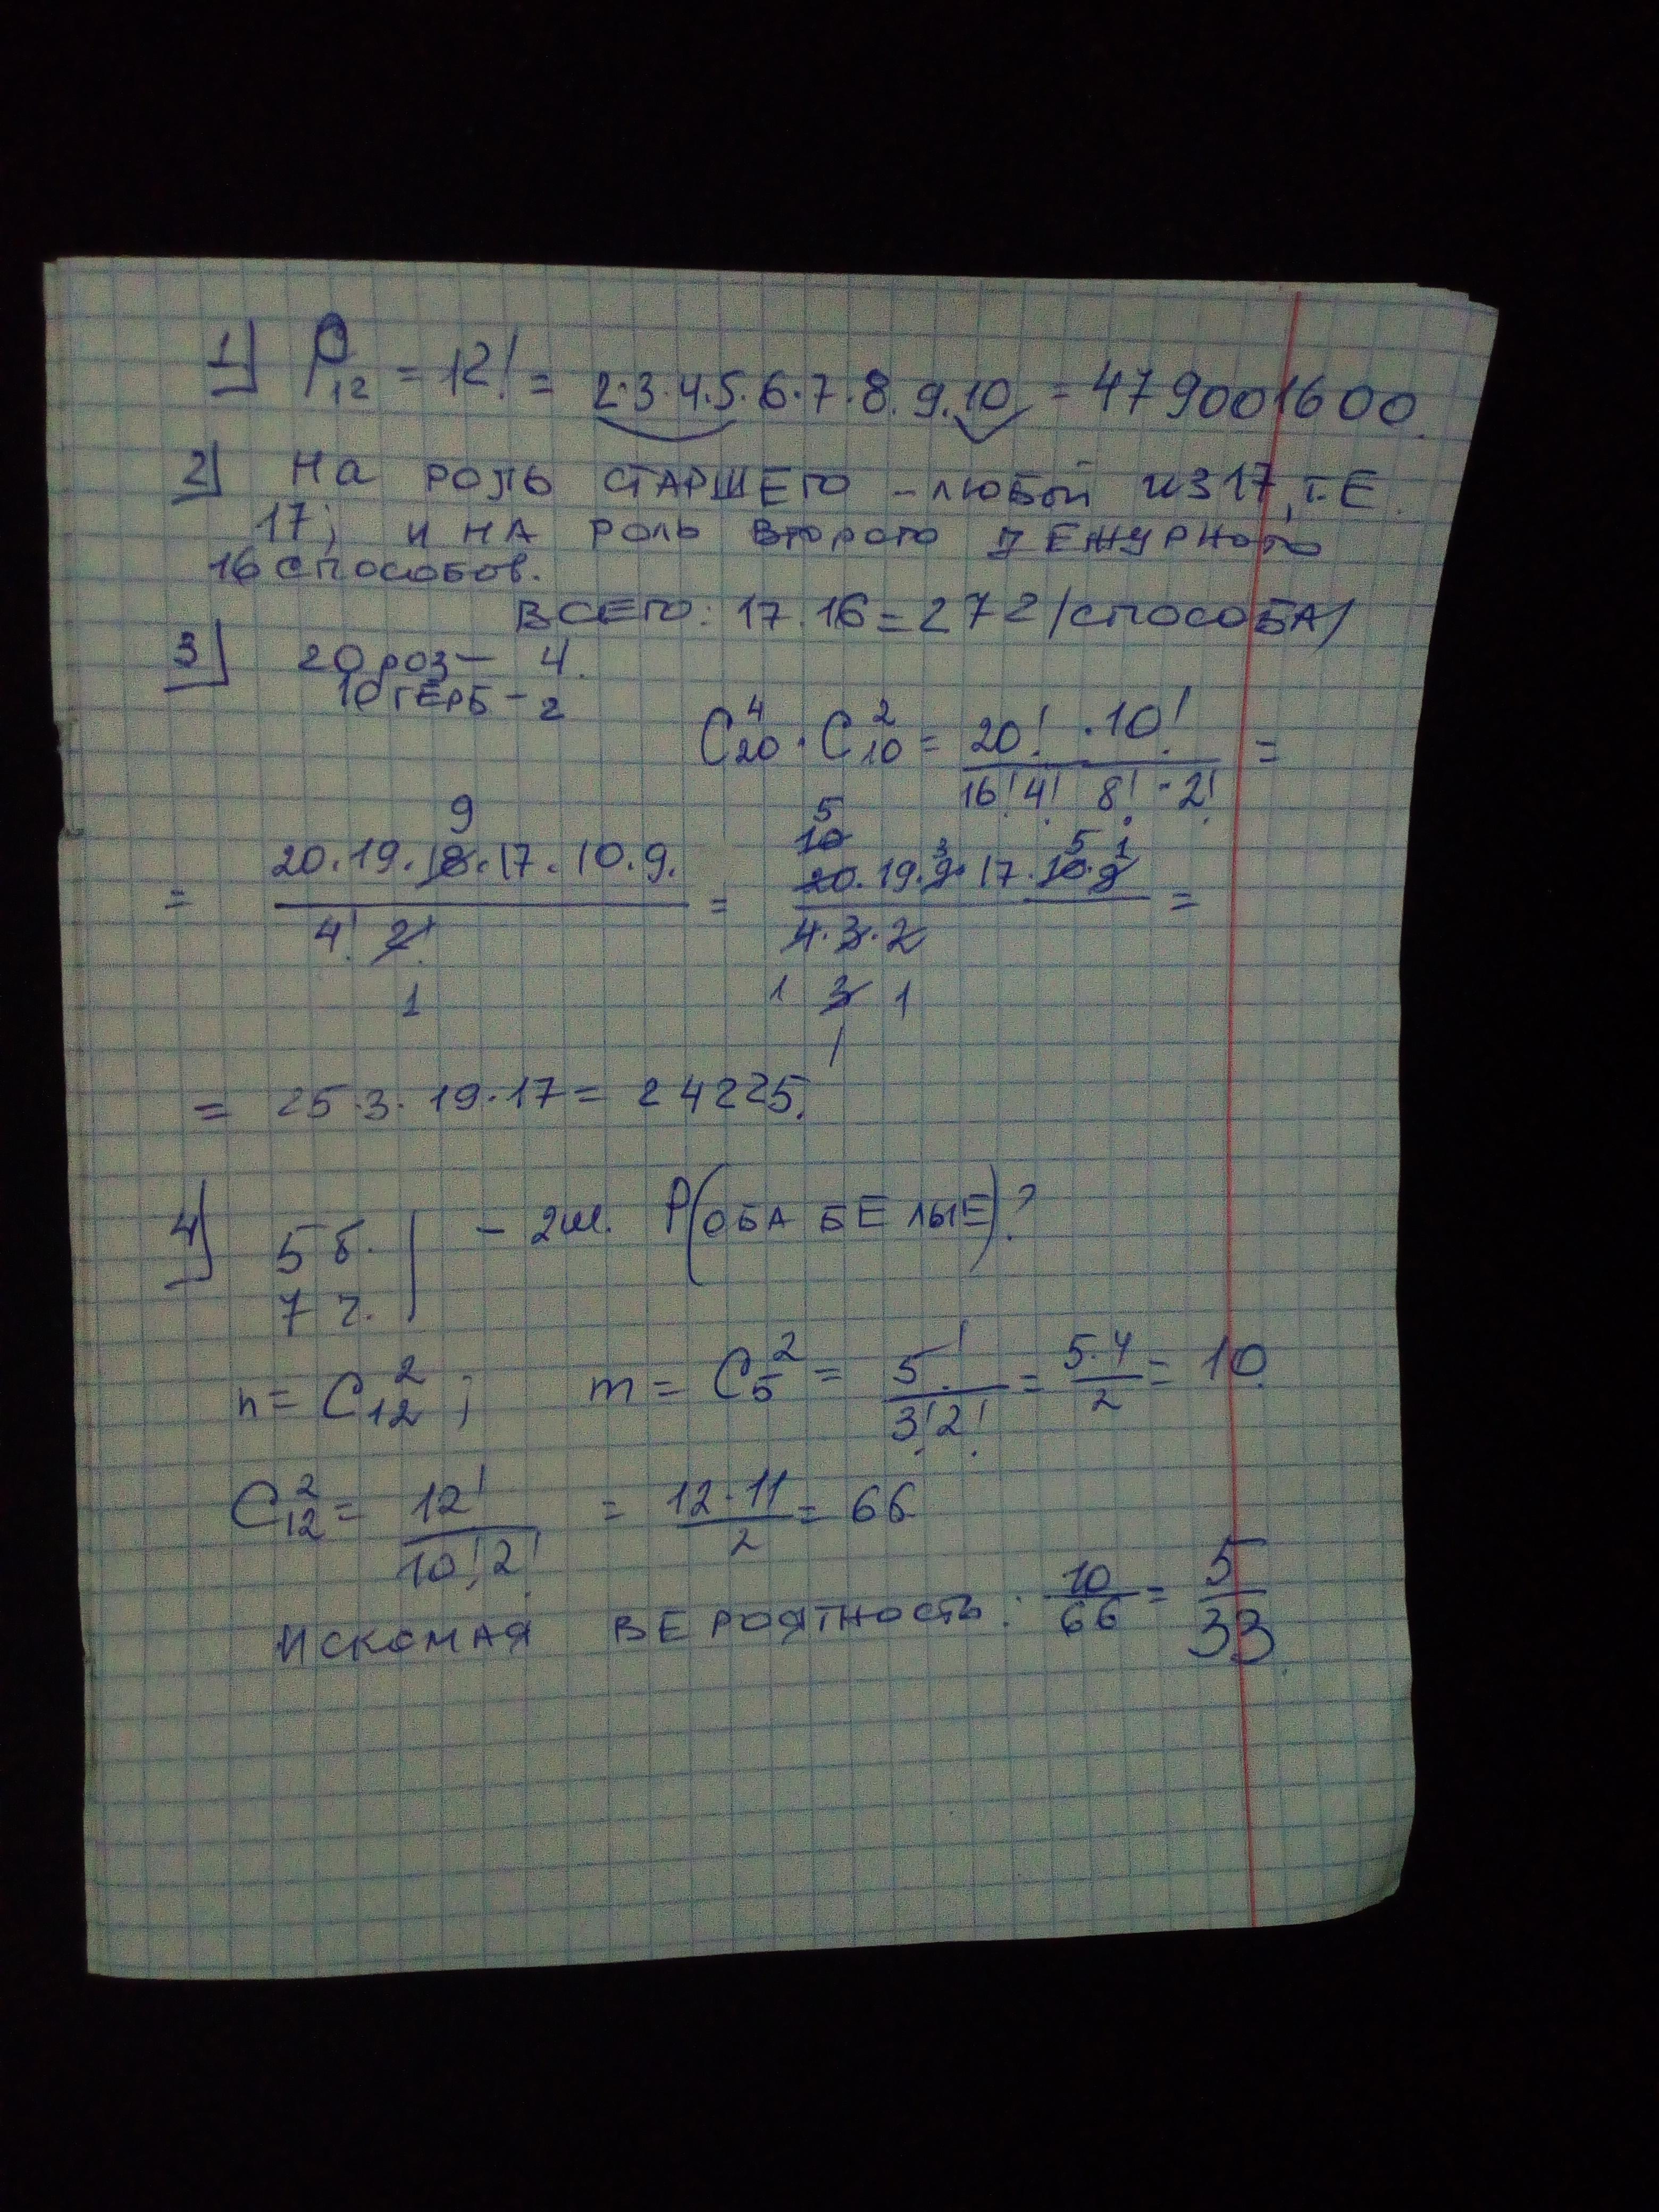 1) P₁₂ = 12! = 2·3·4·5·6·7·8·9·10 = 479001600.
2) На роль старшего – любой из 17, т.е.
17; и на роль второго дежурного
16 способов.
Всего: 17·16 = 272 /способа/
3) 20 роз – 4.
10 герб – 2
C₂₀⁴ · C₁₀² = 20! · 10! / 16! 4! 8! · 2! =
= 20·19·18·17·10·9. / 4! 2! = 20·19·9·17·10·9 / 4·3·2 =
= 25·3·19·17 = 24225.
4) 5 б. – 2 ш. P(оба белые)?
7 ч.
n = C₁₂² ; m = C₅² = 5! / 3! 2! = 5·4 / 2 = 10.
C₁₂² = 12! / 10! 2! = 12·11 / 2 = 66
Искомая вероятность: 10/66 = 5/33.